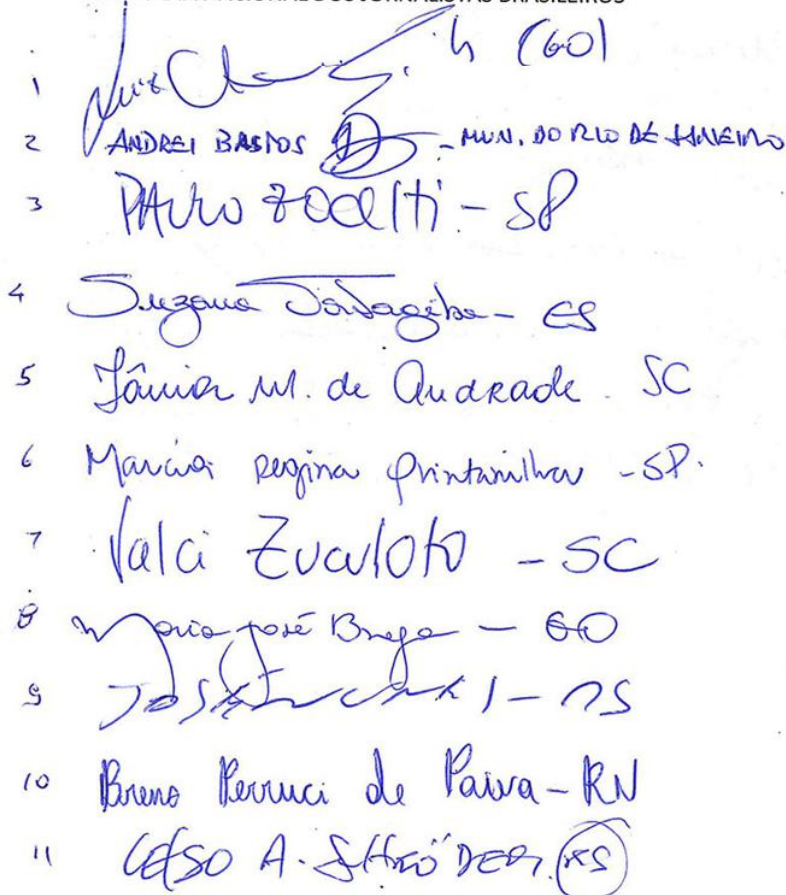 NACIONAL DOS JORNALISTAS BRASILEIROS
1 Luiz (GO)
2 ANDREI BASTOS - MUN. DO RIO DE JANEIRO
3 PAULO ZOCCHI - SP
4 Suzana Tatagiba - ES
5 Tânia M. de Andrade - SC
6 Marcia Regina Quintanilha - SP.
7 Valci Zuculoto - SC
8 Maria José Braga - GO
9 - RS
10 Breno Perruci de Paiva - RN
11 CELSO A. SCHRÖDER (RS)